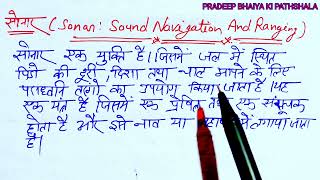 PRADEEP BHAIYA KI PATHSHALA
सोनार (Sonar: Sound Navigation And Ranging)
सोनार एक युक्ति है। जिसमें जल में स्थित
पिंडो की दूरी, दिशा तथा चाल मापने के लिए
पराध्वनि तरंगो का उपयोग किया जाता है। यह
एक यंत्र है जिसमें एक प्रेषित तथा एक संसूचक
होता है और इसे नाव या में लगाया जाता
है।